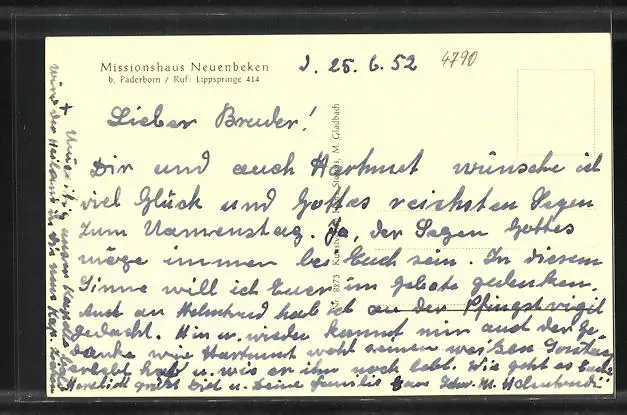 Missionshaus Neuenbeken
b. Paderborn / Ruf: Lippspringe 414
J. 25. 6. 52
4790
Lieber Bruder!
Dir und auch Hartmut wünsche ich
viel Glück und Gottes reichsten Segen
zum Namenstag. Ja, der Segen Gottes
möge immer bei Euch sein. In diesem
Sinne will ich Euer im Gebete gedenken.
Auch an Helmtrud hab ich an der Pfingstvigil
gedacht. Hin u. wieder kommt mir auch der Ge-
danke wie Hartmut wohl seinen weißen Sonntag
erlebt hat u. wie er ihn noch lebt. Wie geht es Euch?
Herzlich grüßt Dich u. Deine Familie Eure Schw. M.
Nr. 8273 M. Gladbach
+ wird der Heiland in die neue